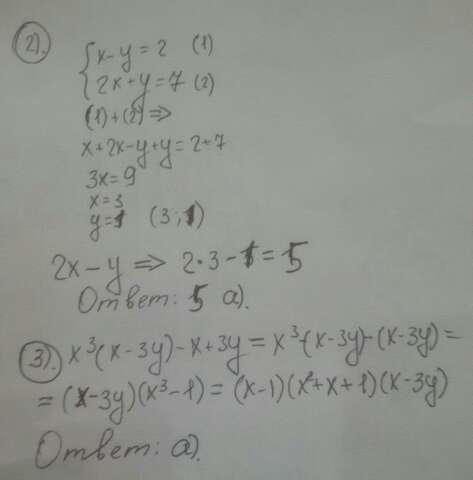 2).
{ x-y=2 (1)
2x+y=7 (2)
(1)+(2) ⇒
x+2x-y+y=2+7
3x=9
x=3
y=1 (3;1)
2x-y ⇒ 2·3-1=5
Ответ: 5 а).
3). x³(x-3y)-x+3y = x³(x-3y)-(x-3y) =
= (x-3y)(x³-1) = (x-1)(x²+x+1)(x-3y)
Ответ: а).